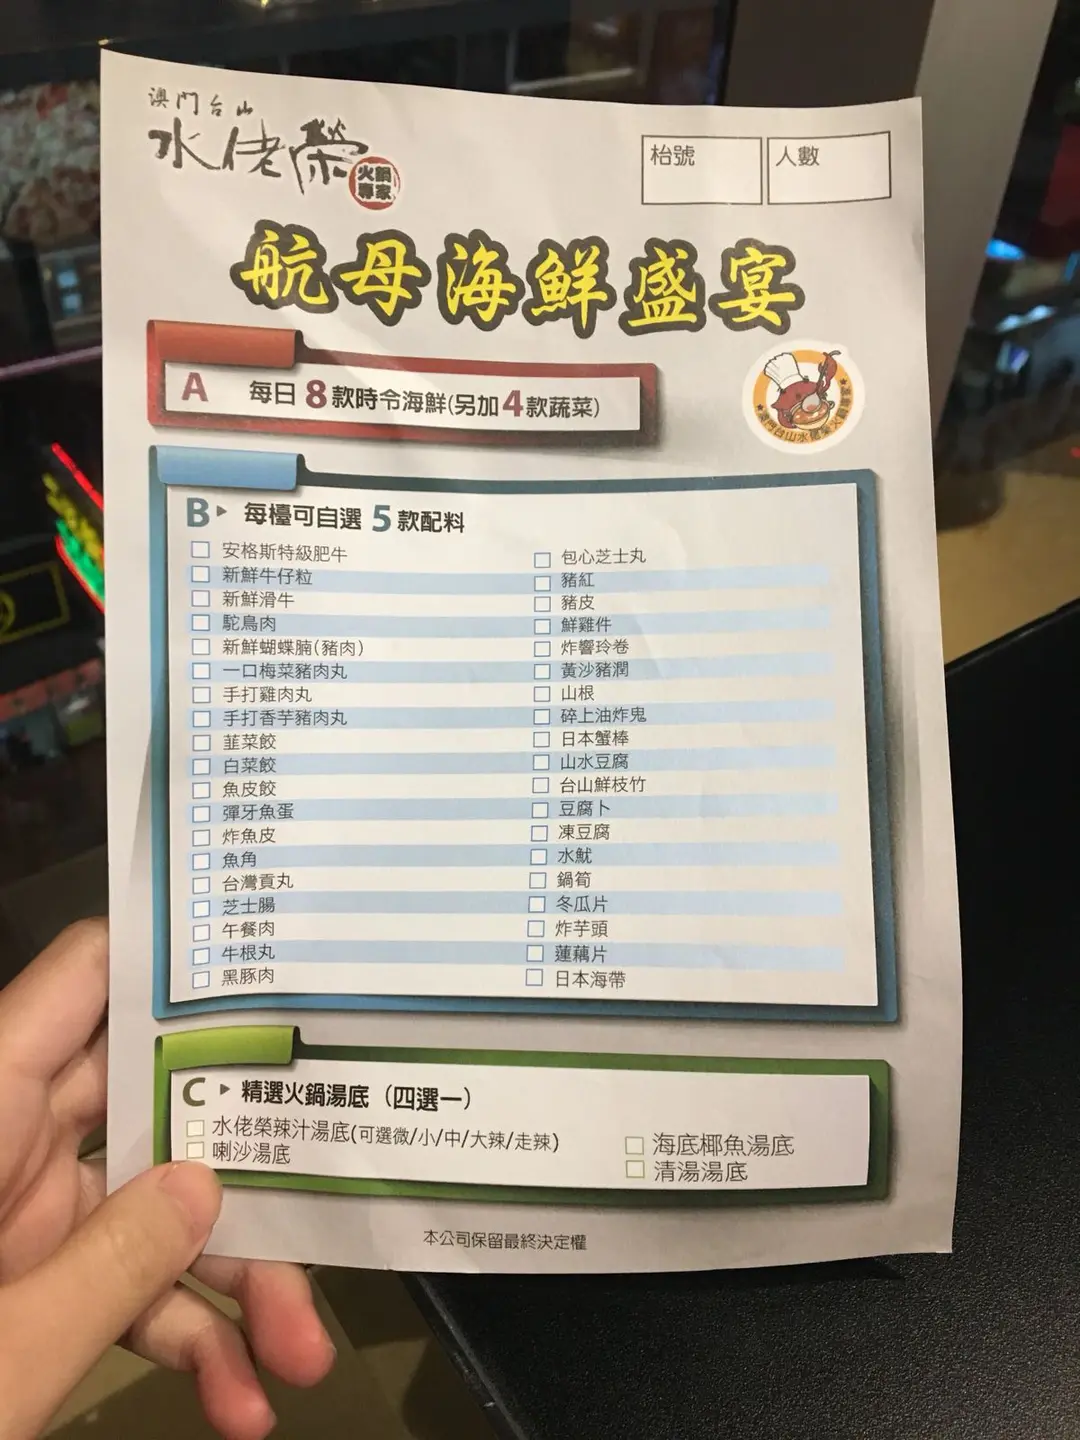 澳門台山
水佬榮
火鍋
專家
枱號
人數
航母海鮮盛宴
A 每日8款時令海鮮(另加4款蔬菜)
澳門台山水佬榮火鍋專家
B 每檯可自選 5 款配料
安格斯特級肥牛
新鮮牛仔粒
新鮮滑牛
駝鳥肉
新鮮蝴蝶腩(豬肉)
一口梅菜豬肉丸
手打雞肉丸
手打香芋豬肉丸
韮菜餃
白菜餃
魚皮餃
彈牙魚蛋
炸魚皮
魚角
台灣貢丸
芝士腸
午餐肉
牛根丸
黑豚肉
包心芝士丸
豬紅
豬皮
鮮雞件
炸響玲卷
黃沙豬潤
山根
碎上油炸鬼
日本蟹棒
山水豆腐
台山鮮枝竹
豆腐卜
凍豆腐
水魷
鍋筍
冬瓜片
炸芋頭
蓮藕片
日本海帶
C 精選火鍋湯底（四選一）
水佬榮辣汁湯底(可選微/小/中/大辣/走辣)
喇沙湯底
海底椰魚湯底
清湯湯底
本公司保留最終決定權